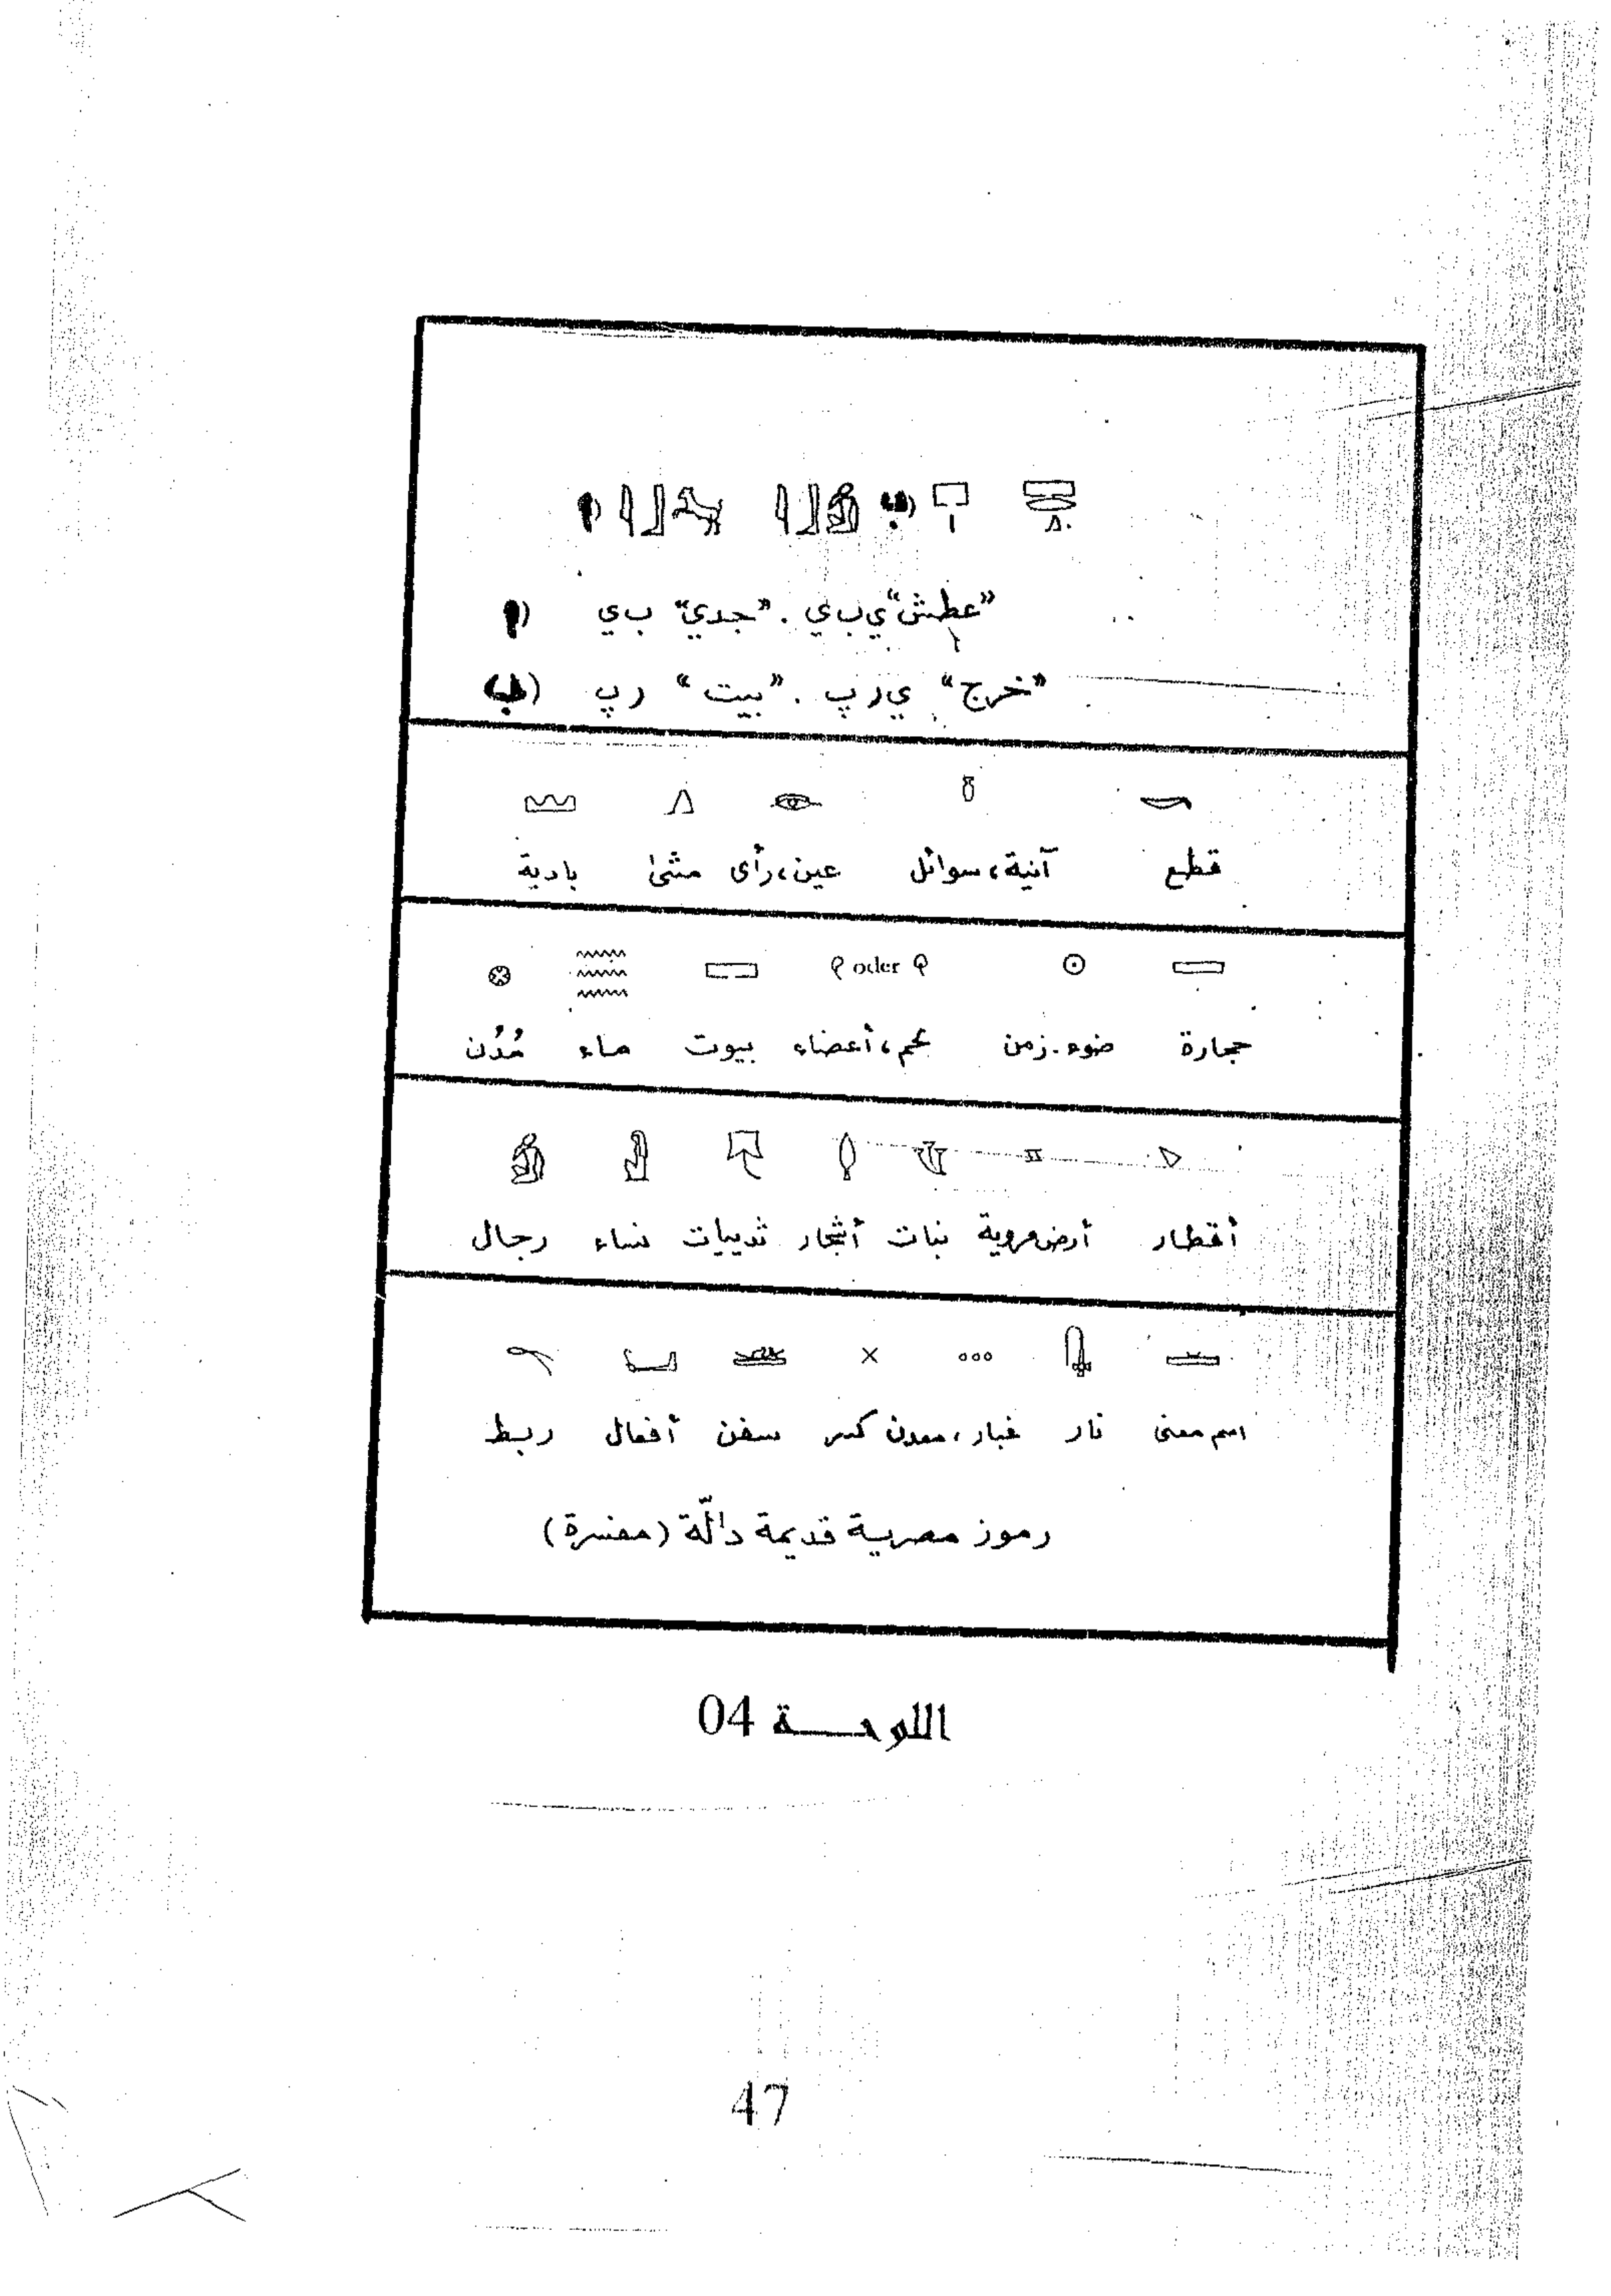 "عطش" ي ب ي . "جدي" ب ي
"خرج" ي ر پ . "بيت" ر پ
قطع آنية، سوائل عين، رأى مشى بادية
oder
حجارة ضوء. زمن لحم، أعضاء بيوت ماء مُدُن
أقطار أرض مروية نبات أشجار ثدييات نساء رجال
اسم معنى نار غبار، معدن كسر سفن أفعال ربط
رموز مصرية قديمة دالّة (مفسرة)
اللوحة 04
47